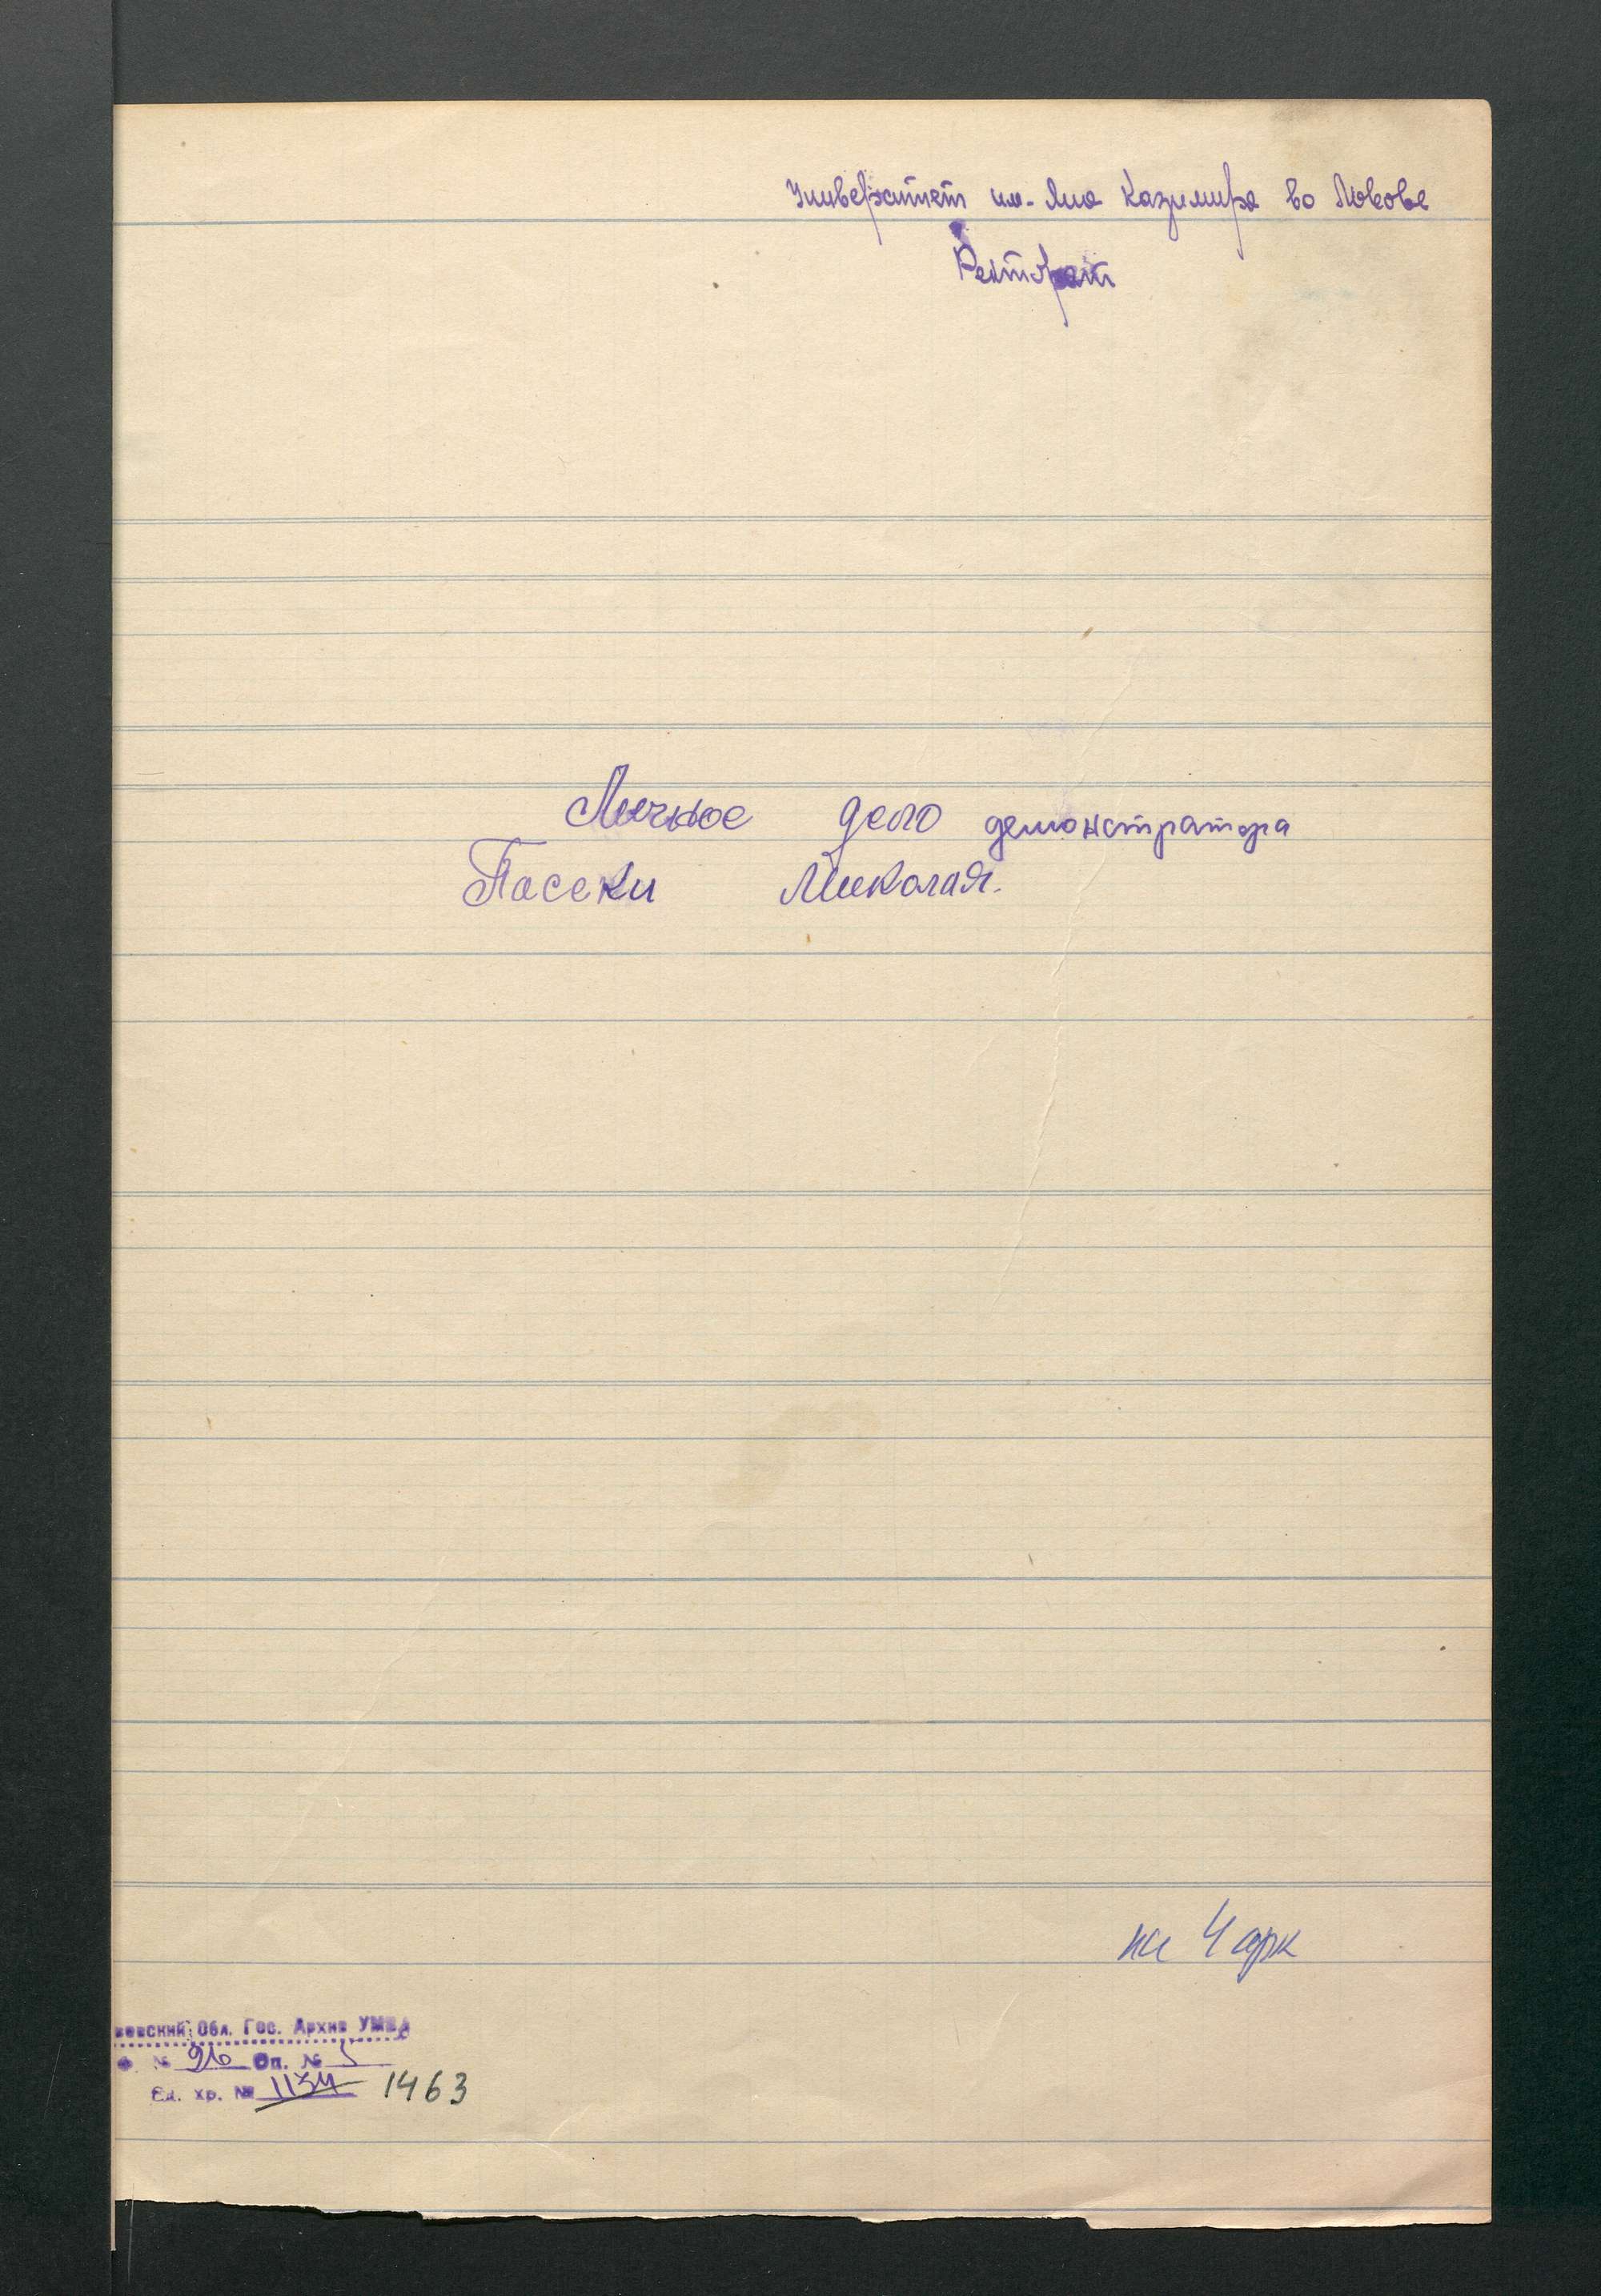 Университет им. Яна Казимира во Львове
Ректорат
Личное дело демонстратора
Пасеки Миколая.
на 4 арк
вовский Обл. Гос. Архив УМВД
Ф. № 26 Оп. № 5
Ед. хр. № 1134 1463